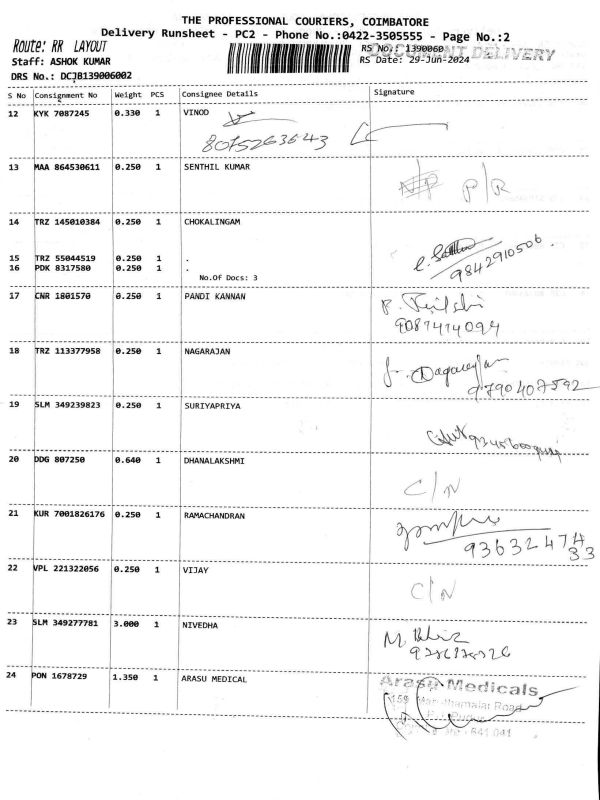 THE PROFESSIONAL COURIERS, COIMBATORE
Delivery Runsheet - PC2 - Phone No.:0422-3505555 - Page No.:2
Route: RR LAYOUT
RS No.: 1390060
DOCUMENT DELIVERY
Staff: ASHOK KUMAR
RS Date: 29-Jun-2024
DRS No.: DCJB139006002
S No Consignment No Weight PCS Consignee Details Signature
12 KYK 7087245 0.330 1 VINOD
8075263643
13 MAA 864530611 0.250 1 SENTHIL KUMAR
P/R
14 TRZ 145010384 0.250 1 CHOKALINGAM
15 TRZ 55044519 0.250 1 .
16 PDK 8317580 0.250 1 .
No.Of Docs: 3
9842910506.
17 CNR 1801570 0.250 1 PANDI KANNAN
9087414094
18 TRZ 113377958 0.250 1 NAGARAJAN
9790407592
19 SLM 349239823 0.250 1 SURIYAPRIYA
20 DDG 807250 0.640 1 DHANALAKSHMI
C/N
21 KUR 7001826176 0.250 1 RAMACHANDRAN
93632474
33
22 VPL 221322056 0.250 1 VIJAY
C/N
23 SLM 349277781 3.000 1 NIVEDHA
24 PON 1678729 1.350 1 ARASU MEDICAL
Arasu Medicals
159, Maruthamalai Road
641 041